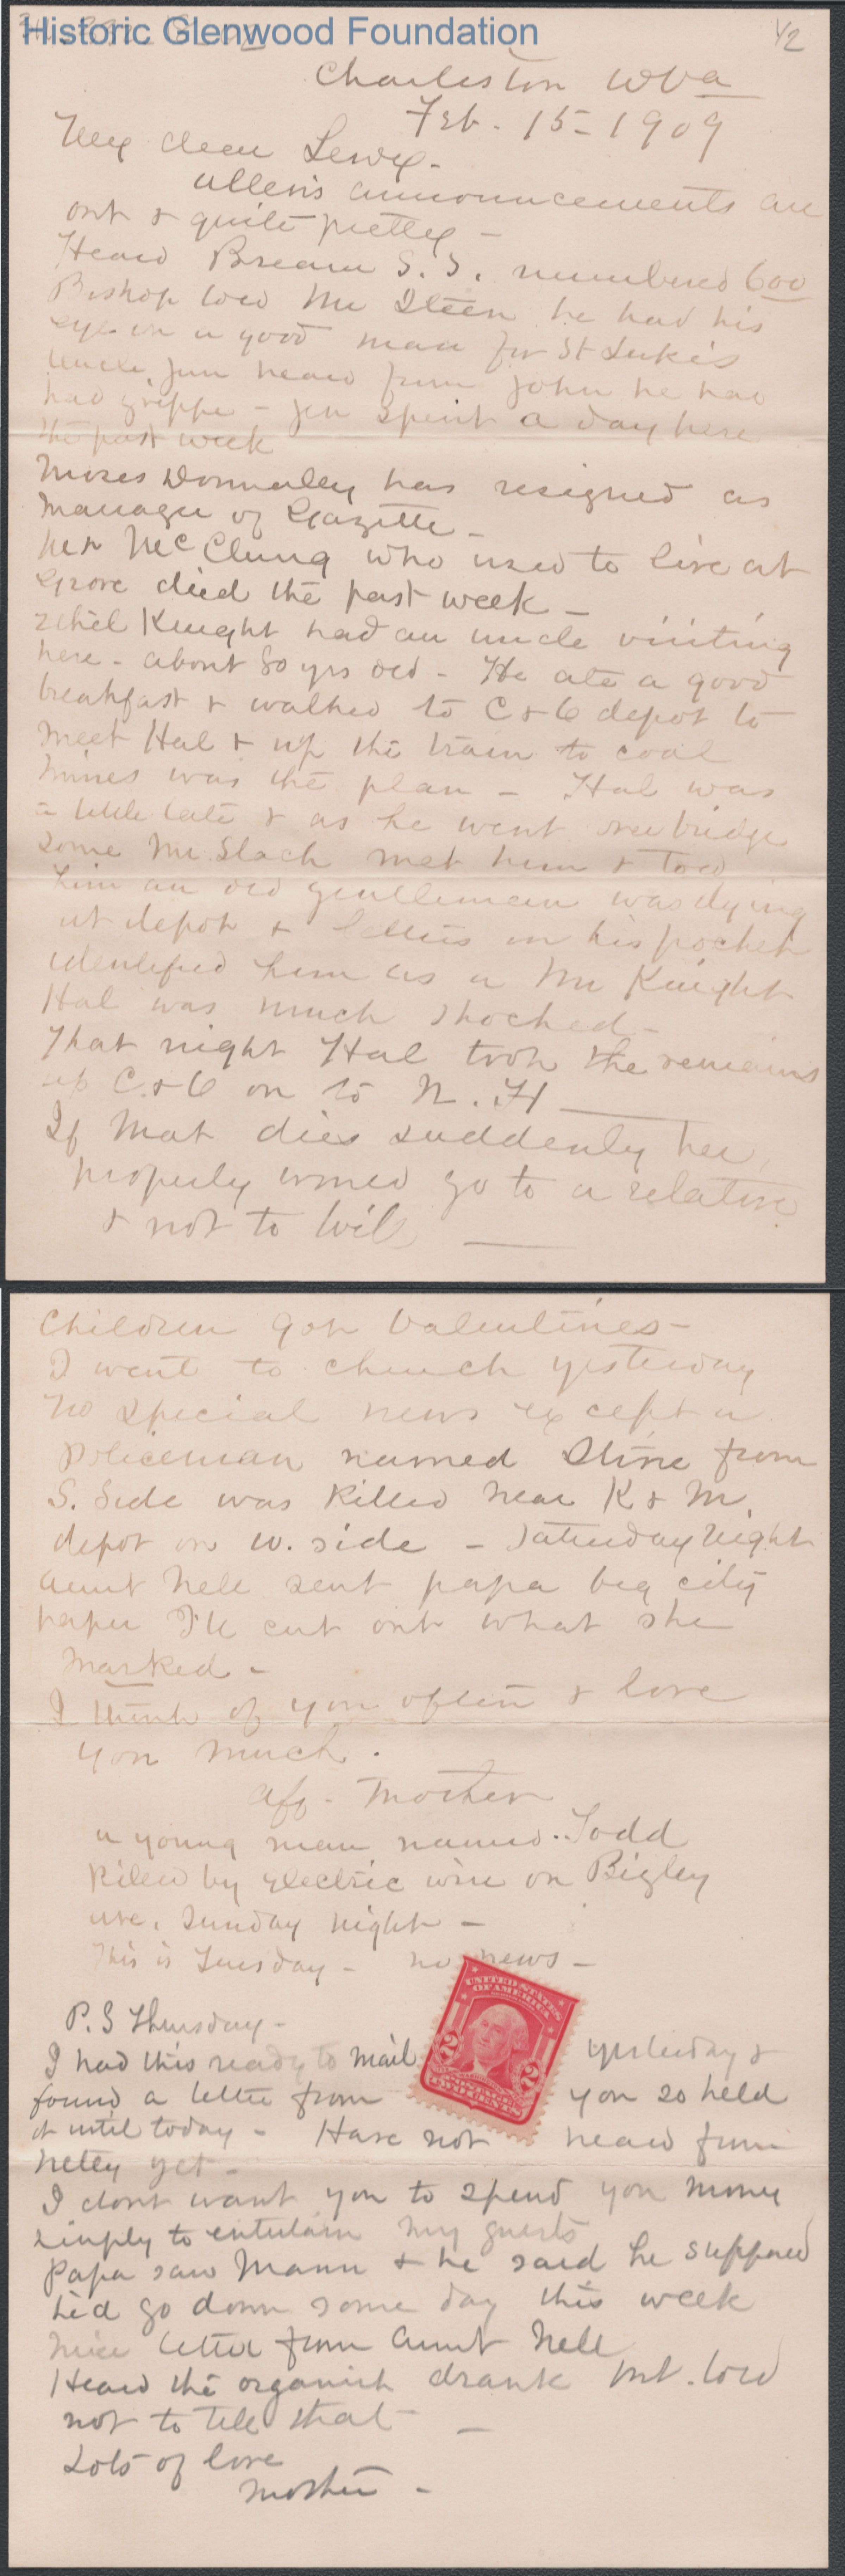 Historic Glenwood Foundation
1/2
Charleston WVa
Feb. 15-1909
My dear Lewy-
Allen's announcements are
out & quite pretty -
Heard Bream S. S. numbered 600
Bishop told Mr Steen he had his
eye on a good man for St Luke's
Uncle Jim heard from John he had
had grippe - Jen spent a day here
the past week
Moses Donnalley has resigned as
manager of Gazette -
Mr McClung who used to live at
Grove died the past week -
Ethel Knight had an uncle visiting
here - about 80 yrs old - He ate a good
breakfast & walked to C & O depot to
meet Hal & up the train to coal
mines was the plan - Hal was
a little late & as he went over bridge
some Mr Slack met him & told
him an old gentleman was dying
at depot & letters in his pocket
identified him as a Mr Knight
Hal was much shocked -
That night Hal took the remains
up C. & O on to N. H
If Mat dies suddenly her
property would go to a relative
& not to Will
Children got Valentines -
I went to church yesterday
No special news except a
policeman named Stine from
S. Side was killed near K & M.
depot on W. side - Saturday night
Aunt Nell sent papa big city
paper I'll cut out what she
marked -
I think of you often & love
you much.
Aff - Mother
a young man named Todd
killed by electric wire on Bigley
ave. Sunday night -
This is Tuesday - no news -
UNITED STATES
OF AMERICA
2 2
POSTAGE
TWO CENTS
P. S Thursday -
I had this ready to mail yesterday &
found a letter from you so held
it until today - Have not heard from
yet -
I dont want you to spend you money
simply to entertain my guests
Papa saw Mann & he said he supposed
he'd go down some day this week
Nice letter from Aunt Nell
Heard the organist drank but told
not to tell that -
Lots of love
Mother -